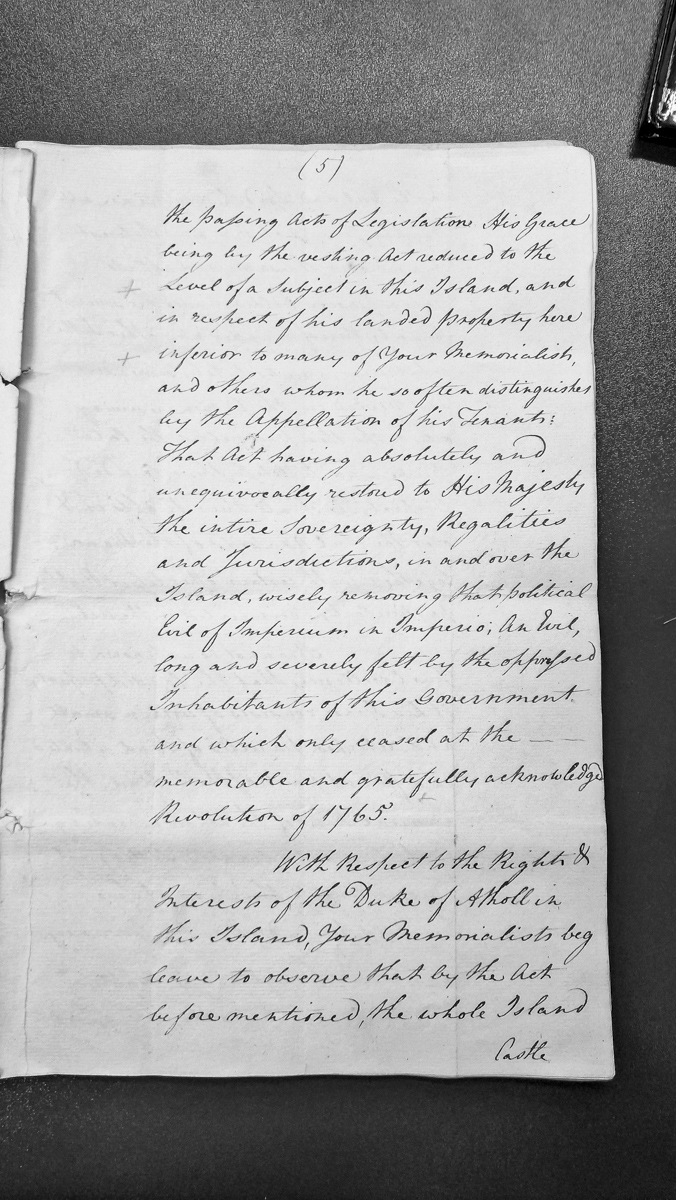 (5)
the passing Acts of Legislation His Grace
being by the vesting Act reduced to the
+ Level of a Subject in this Island, and
in respect of his landed Property here
+ inferior to many of Your Memorialists,
and others whom he so often distinguishes
by the Appellation of his Tenants:
That Act having absolutely and
unequivocally restored to His Majesty
the intire Sovereignty, Regalities
and Jurisdictions, in and over the
Island, wisely removing that political
Evil of Imperium in Imperio; An Evil,
long and severely felt by the oppressed
Inhabitants of this Government
and which only ceased at the — —
memorable and gratefully acknowledged
Revolution of 1765.
With Respect to the Rights &
Interests of the Duke of Atholl in
this Island, Your Memorialists beg
leave to observe that by the Act
before mentioned, the whole Island
Castle